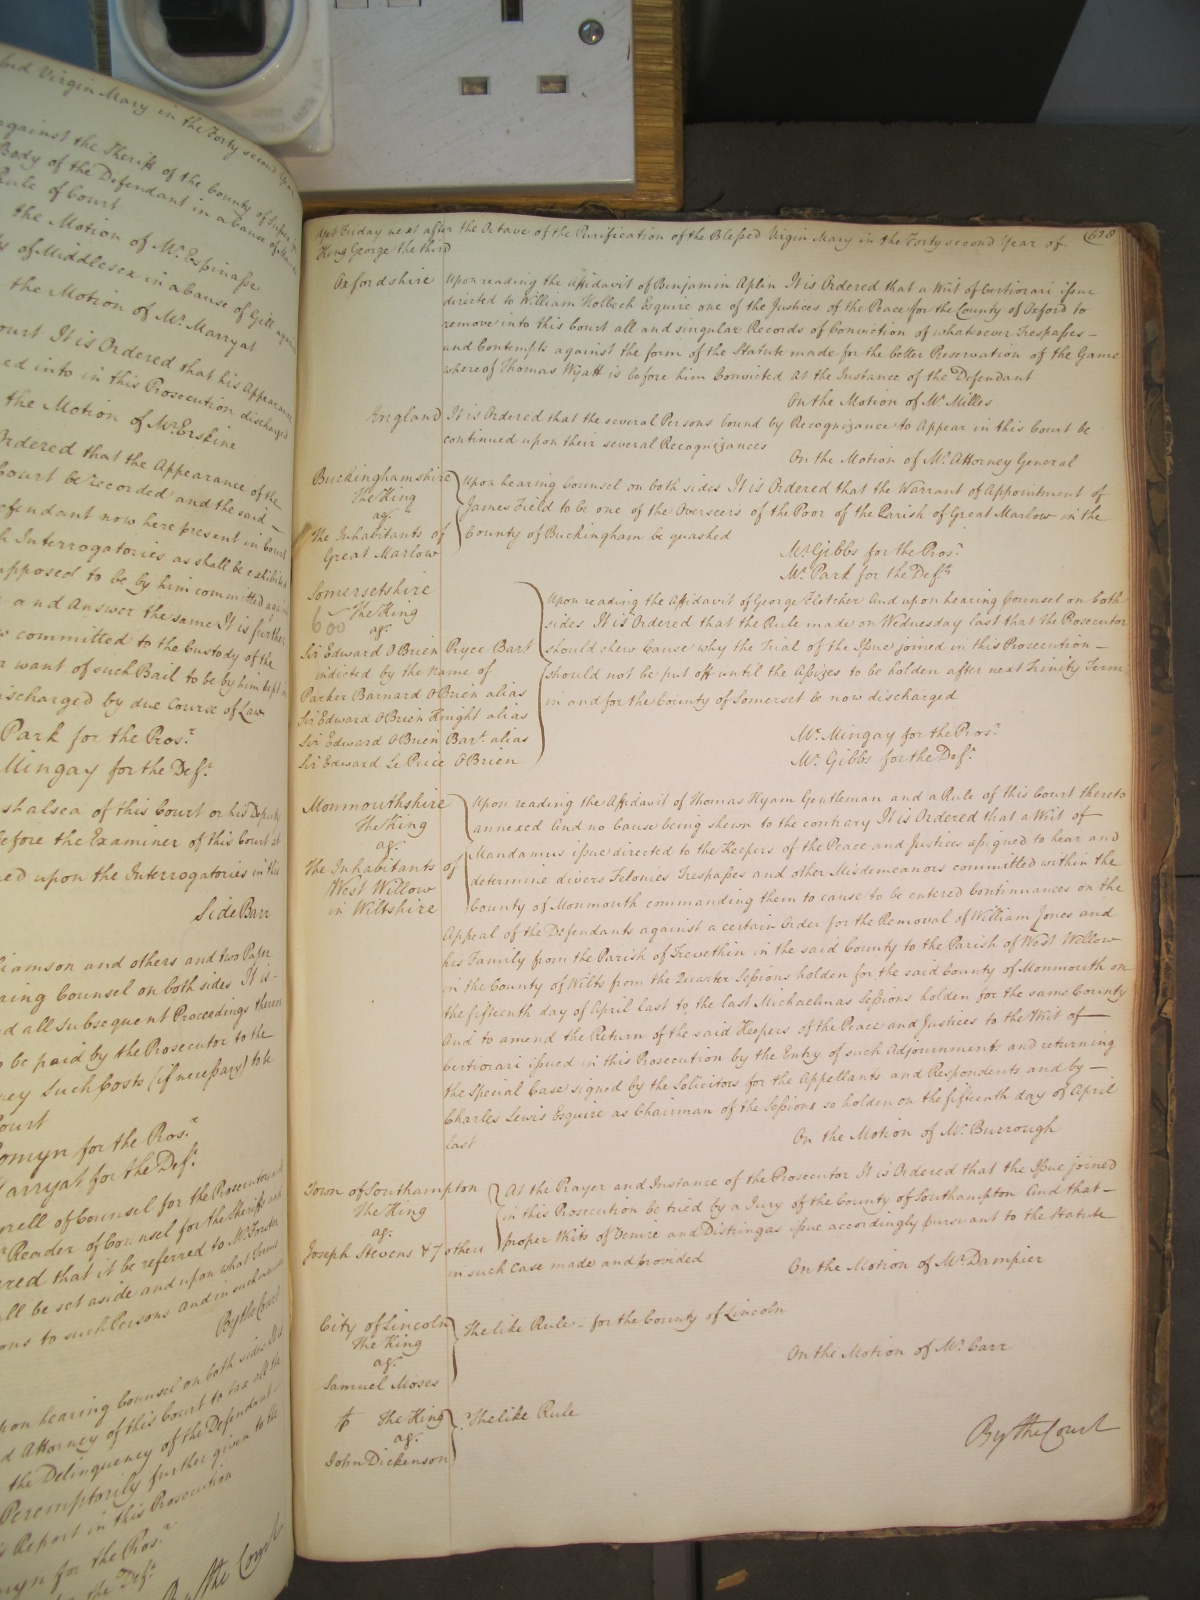 ssed Virgin Mary in the Forty second Year
against the Sheriff of the County of
Body of the Defendant in a Cause of
Rule of Court
the Motion of Mr. Espinasse
of Middlesex in a Cause of Gill against
the Motion of Mr. Marryat
ourt It is Ordered that his Appearance
ed into in this Prosecution discharged
the Motion of Mr. Erskine
Ordered that the Appearance of the
Court be recorded and the said
efendant now here present in Court
Interrogatories as shall be exhibited
upposed to be by him committed
and Answer the same It is further
committed to the Custody of the
r want of such Bail to be by him kept in
ischarged by due Course of Law
Park for the Pros.r
Mingay for the Def.t
shalsea of this Court or his Deputy
before the Examiner of this Court
ed upon the Interrogatories in this
Side Barr
liamson and others and two Paper
ring Counsel on both sides It is
d all subsequent Proceedings thereon
o be paid by the Prosecutor to the
ney such Costs (if necessary) to be
Court
omyn for the Pros.r
arryat for the Def.t
rell of Counsel for the Prosecutor and
Reader of Counsel for the Sheriff and
red that it be referred to Mr. Foster
all be set aside and upon what Terms
ons to such Persons and in such
By the Court
pon hearing Counsel on both sides It is
d Attorney of this Court to tax all the
the Delinquency of the Defendant
Peremptorily further given to the
s Report in this Prosecution
myn for the Pros.r
the Def.t
By the Court
Friday next after the Octave of the Purification of the Blessed Virgin Mary in the Forty second Year of 628
King George the third
Oxfordshire Upon reading the Affidavit of Benjamin Aplin It is Ordered that a Writ of Certiorari issue
directed to William Holbech Esquire one of the Justices of the Peace for the County of Oxford to
remove into this Court all and singular Records of Conviction of whatsoever Trespasses
and Contempts against the form of the Statute made for the better Preservation of the Game
whereof Thomas Wyatt is before him Convicted At the Instance of the Defendant
On the Motion of Mr. Milles
England It is Ordered that the several Persons bound by Recognizance to Appear in this Court be
continued upon their several Recognizances
On the Motion of Mr. Attorney General
Buckinghamshire
The King
ag.t
The Inhabitants of
Great Marlow
Upon hearing Counsel on both sides It is Ordered that the Warrant of Appointment of
James Field to be one of the Overseers of the Poor of the Parish of Great Marlow in the
County of Buckingham be quashed
Mr. Gibbs for the Pros.r
Mr. Park for the Def.ts
Somersetshire
600 The King
ag.t
Sir Edward O Brien Pryce Bart
indicted by the name of
Parker Barnard O Brien alias
Sir Edward O Brien Knight alias
Sir Edward O Brien Bar.t alias
Sir Edward Le Price O Brien
Upon reading the Affidavit of George Fletcher And upon hearing Counsel on both
sides It is Ordered that the Rule made on Wednesday last that the Prosecutor
should shew Cause why the Trial of the Issue joined in this Prosecution
should not be put off until the Assizes to be holden after next Trinity Term
in and for the County of Somerset be now discharged
Mr. Mingay for the Pros.r
Mr. Gibbs for the Def.t
Monmouthshire
The King
ag.t
The Inhabitants of
West Willow
in Wiltshire
Upon reading the Affidavit of Thomas Hyam Gentleman and a Rule of this Court thereto
annexed And no Cause being shewn to the contrary It is Ordered that a Writ of
Mandamus issue directed to the Keepers of the Peace and Justices assigned to hear and
determine divers Felonies Trespasses and other Misdemeanors committed within the
County of Monmouth commanding them to cause to be entered Continuances on the
Appeal of the Defendants against a certain Order for the Removal of William Jones and
his Family from the Parish of Trevethin in the said County to the Parish of West Willow
in the County of Wilts from the Quarter Sessions holden for the said County of Monmouth on
the fifteenth day of April last to the last Michaelmas Sessions holden for the same County
And to amend the Return of the said Keepers of the Peace and Justices to the Writ of
Certiorari issued in this Prosecution by the Entry of such Adjournments and returning
the Special Case signed by the Solicitors for the Appellants and Respondents and by
Charles Lewis Esquire as Chairman of the Sessions so holden on the fifteenth day of April
last
On the Motion of Mr. Burrough
Town of Southampton
The King
ag.t
Joseph Stevens & 7 others
At the Prayer and Instance of the Prosecutor It is Ordered that the Issue joined
in this Prosecution be tried by a Jury of the County of Southampton And that
proper Writs of Venire and Distringas issue accordingly pursuant to the Statute
in such Case made and provided
On the Motion of Mr. Dampier
City of Lincoln
The King
ag.t
Samuel Moses
The like Rule for the County of Lincoln
On the Motion of Mr. Carr
The King
ag.t
John Dickenson
The like Rule
By the Court